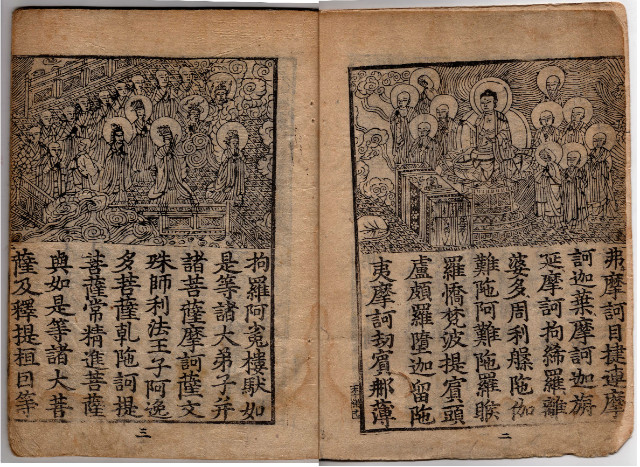 弗摩訶目揵連摩
訶迦葉摩訶迦旃
延摩訶拘絺羅離
婆多周利槃陁伽
難陁阿難陁羅睺
羅憍梵波提賓頭
盧頗羅墮迦留陁
夷摩訶劫賓那薄
二
拘羅阿㝹樓馱如
是等諸大弟子并
諸菩薩摩訶薩文
殊師利法王子阿逸
多菩薩乾陁訶提
菩薩常精進菩薩
與如是等諸大菩
薩及釋提桓因等
三